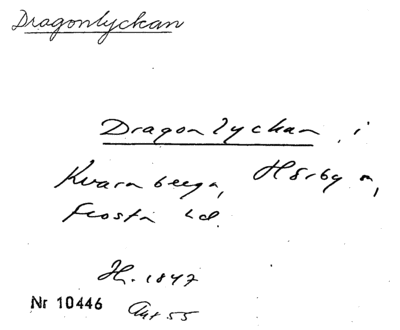 Dragonlyckan
Dragonlyckan, i
Kvarnberga, Hörby sn,
Frosta hd.
H. 1847
Nr 10446 Akt 55